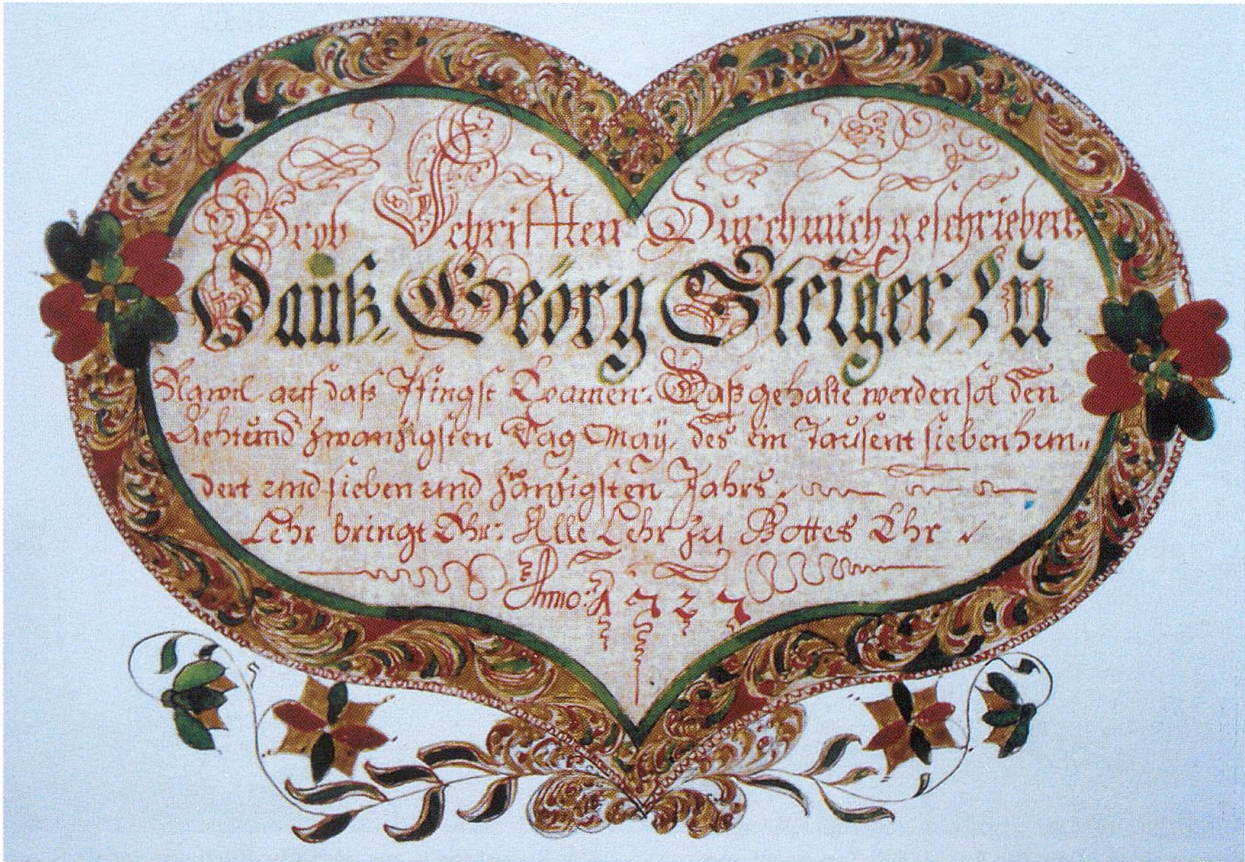 Prob Schrifften Durch mich geschrieben
Hanß Geörg Steiger, Zu
Flawil auf daß Pfingst Examen. Daß gehalte werden sol den
Achtund zwanzigsten Tag Maÿ, des ein Tausent siebenhun„
dert und sieben und zwanzigsten Jahrs.
Lehr bringt Ehr: Alle Lehr zu Gottes Ehr
Anno: 1727